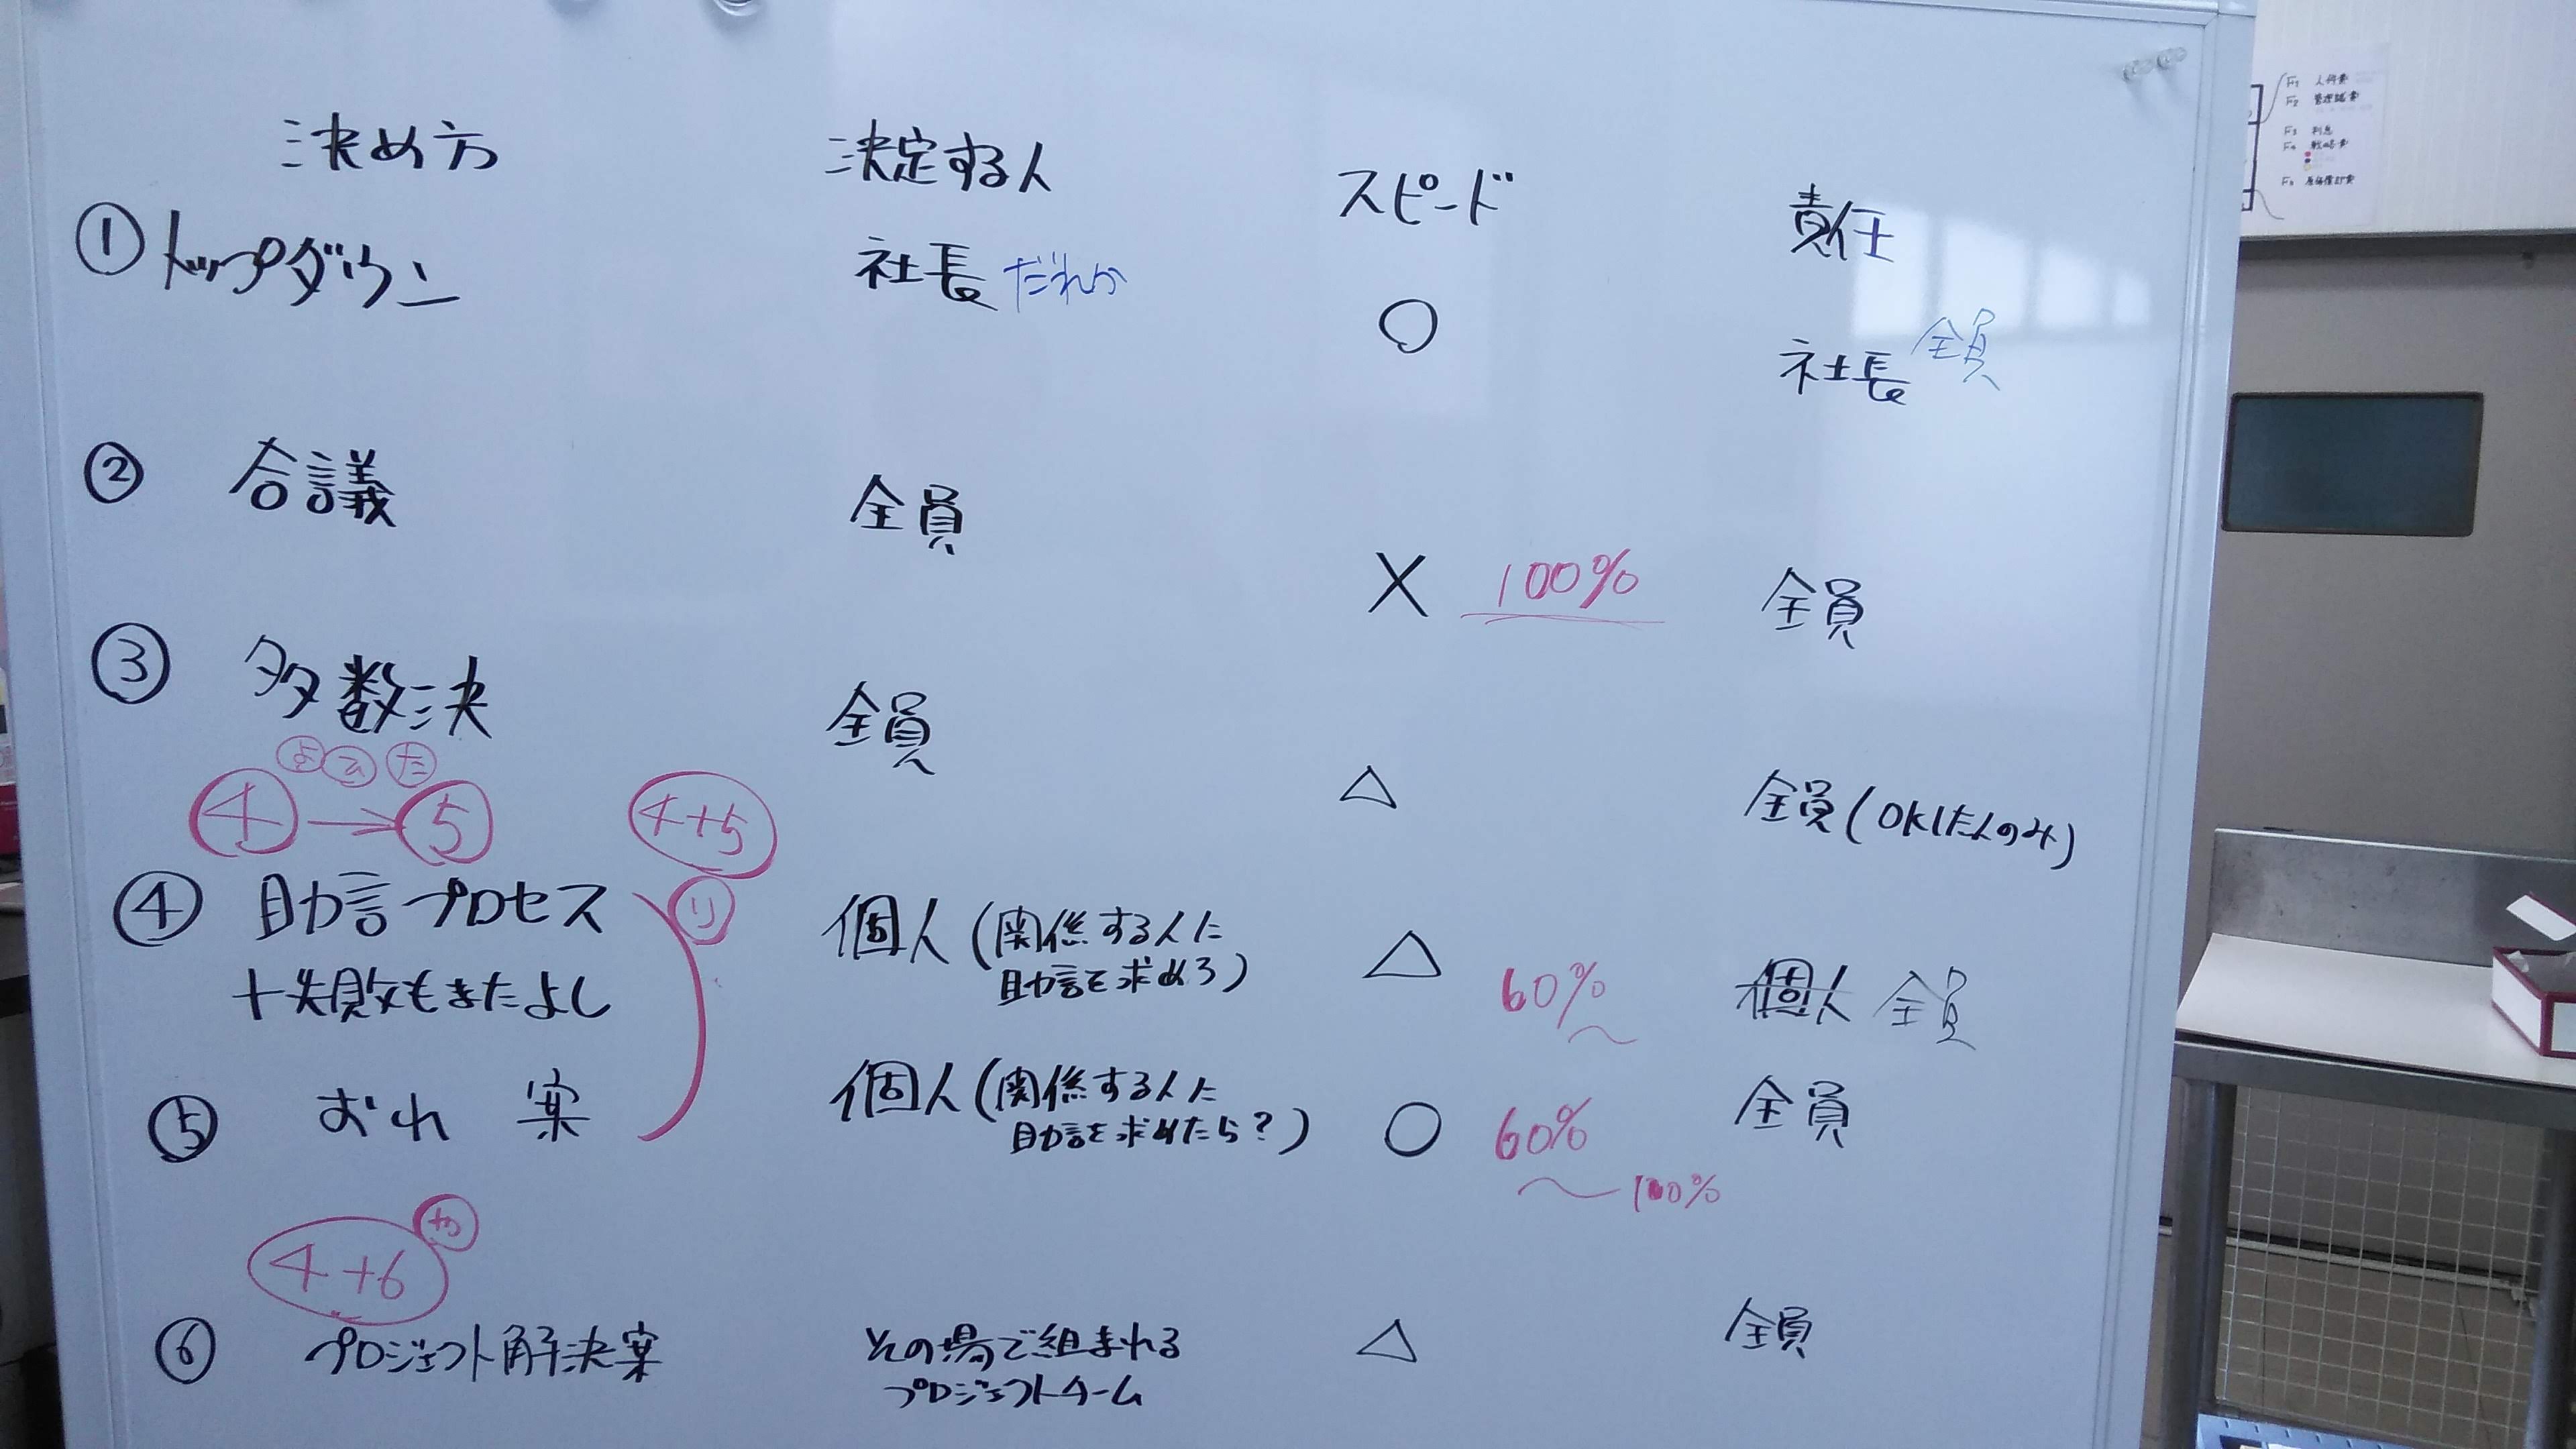 決め方 決定する人 スピード 責任
① トップダウン 社長 だれか ○ 社長 全員
② 合議 全員 × 100% 全員
③ 多数決 全員 △ 全員(OKした人のみ)
4 → 5
4+5
④ 助言プロセス 個人(関係する人に △ 60% 個人 全員
+失敗もまたよし 助言を求めろ)
り
⑤ おれ 案 個人(関係する人に ○ 60% 全員
助言を求めたら?) 〜100%
4+6
⑥ プロジェクト解決案 その場で組まれる △ 全員
プロジェクトチーム
F1 人件費
F2
F3 利息
F4 戦略費
F5